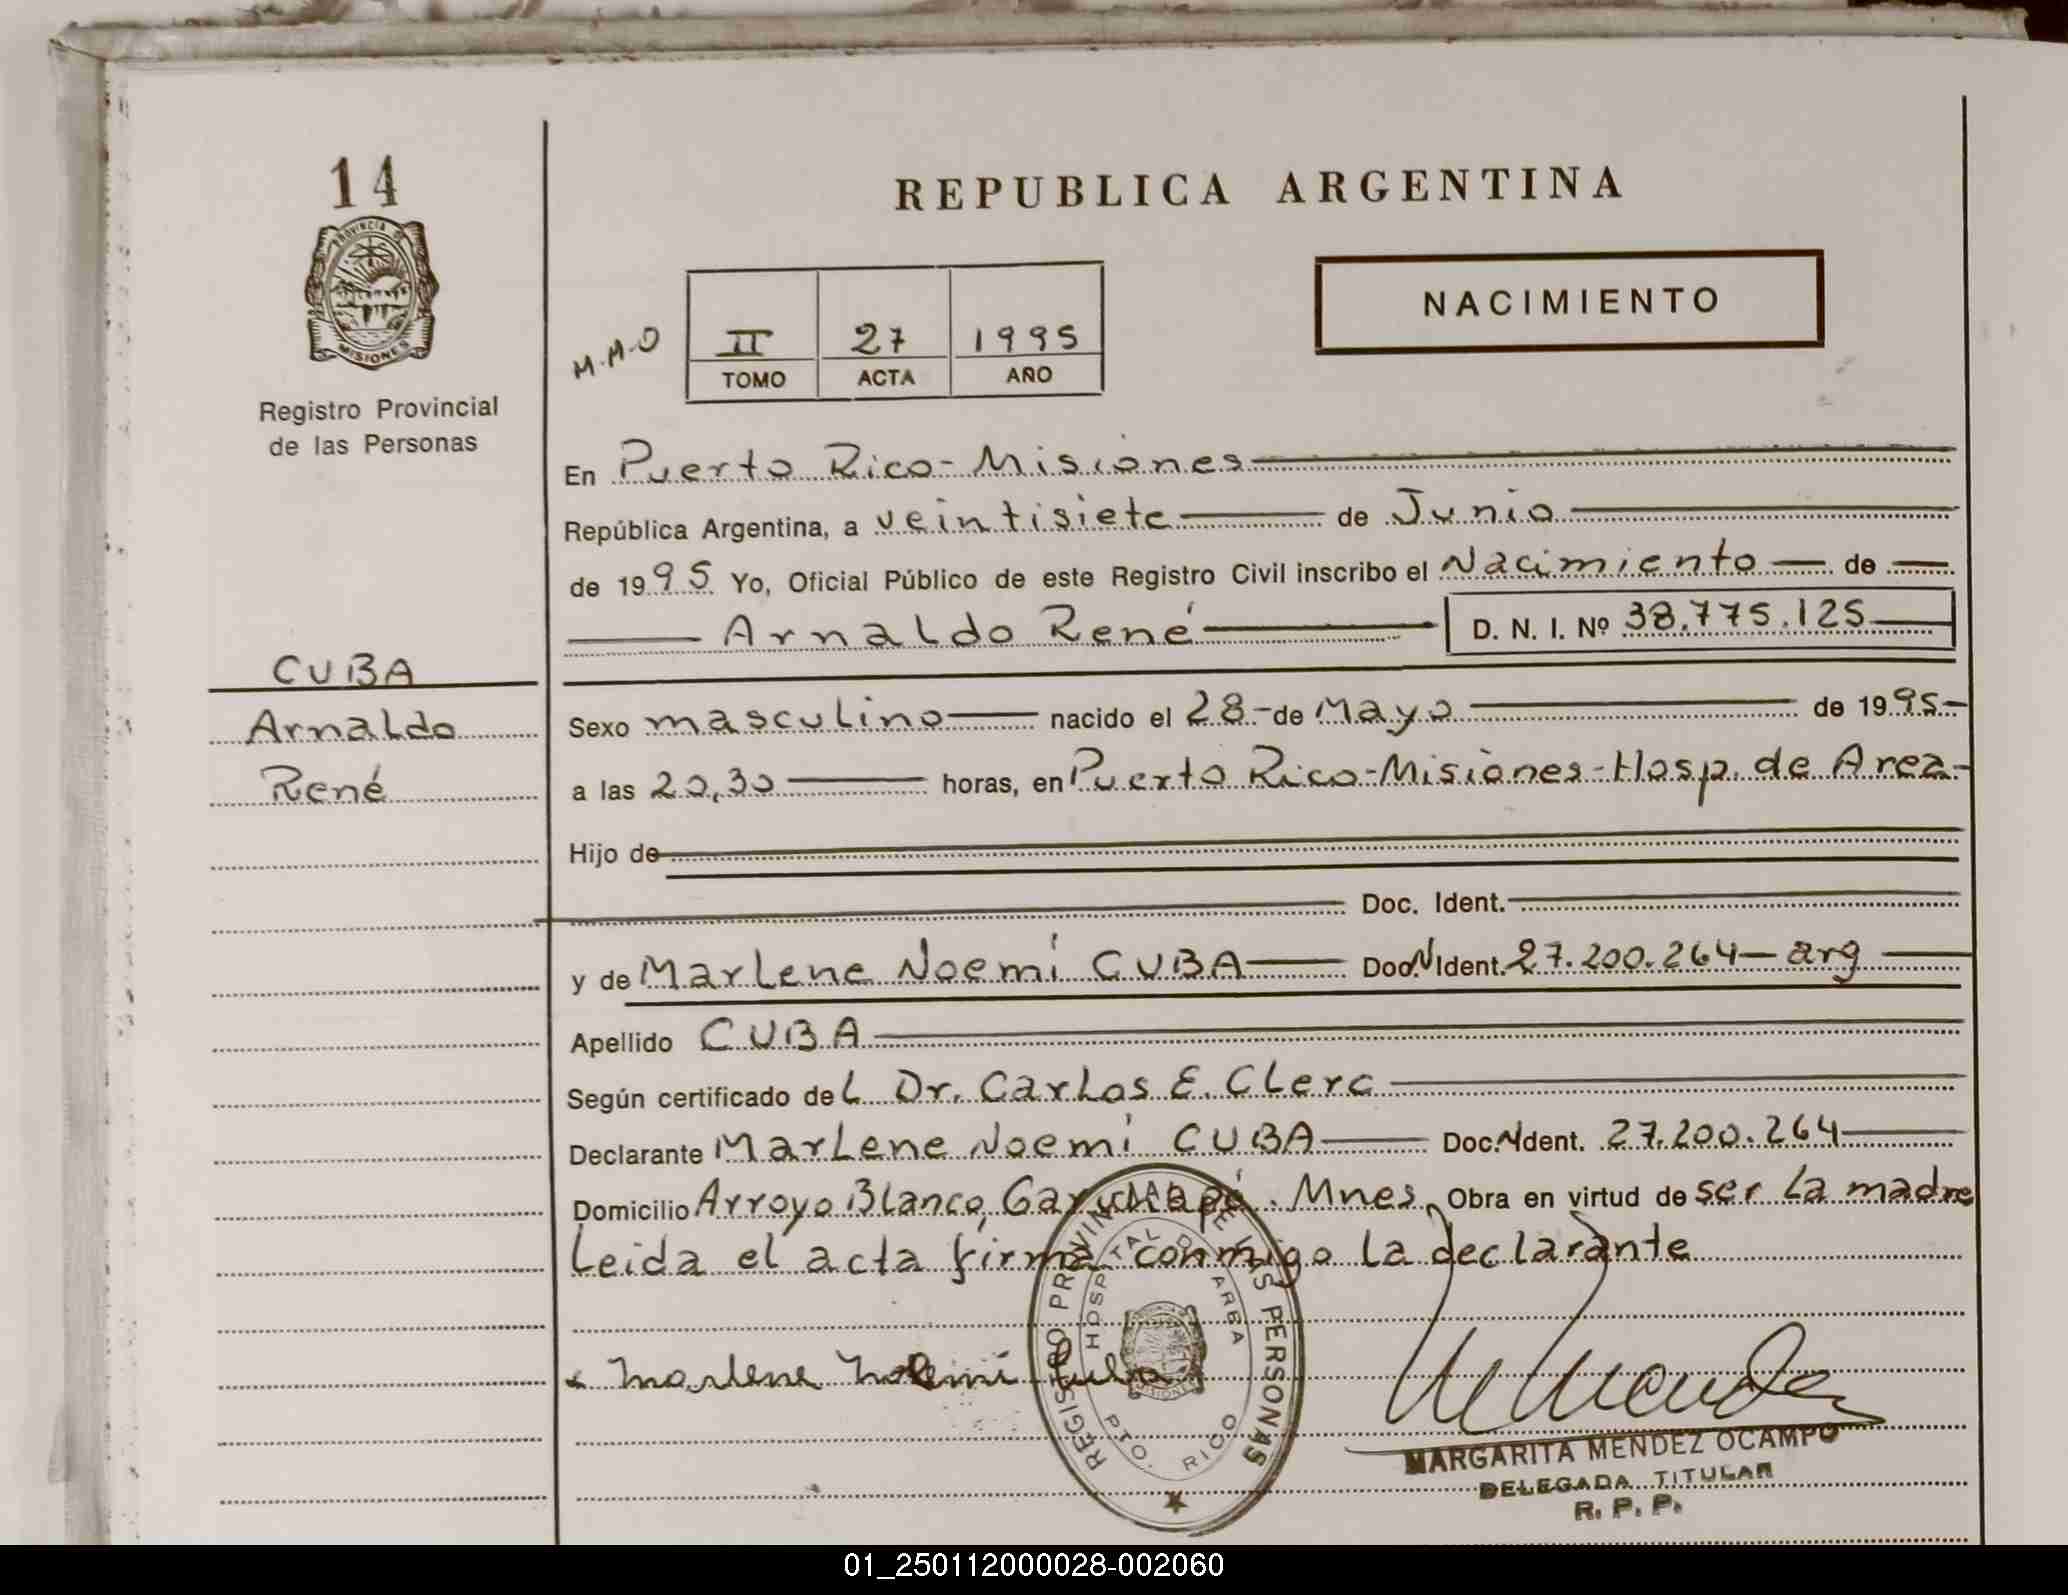 14
PROVINCIA DE
MISIONES
Registro Provincial
de las Personas
CUBA
Arnaldo
René
REPUBLICA ARGENTINA
NACIMIENTO
M.M.O
II 27 1995
TOMO ACTA AÑO
En Puerto Rico - Misiones
República Argentina, a veintisiete de Junio
de 1995 Yo, Oficial Público de este Registro Civil inscribo el Nacimiento de
Arnaldo René D. N. I. Nº 38.775.125
Sexo masculino nacido el 28 de Mayo de 1995
a las 20,30 horas, en Puerto Rico-Misiones-Hosp. de Area
Hijo de
Doc. Ident.
y de Marlene Noemí CUBA Doc.N Ident. 27.200.264 - arg
Apellido CUBA
Según certificado del Dr. Carlos E. Clerc
Declarante Marlene Noemí CUBA Doc.N Ident. 27.200.264
Domicilio Arroyo Blanco, Garuhapé. Mnes, Obra en virtud de ser la madre
Leida el acta firma conmigo la declarante
Marlene Noemi Cuba
REGISTRO PROVINCIAL DE LAS PERSONAS
HOSPITAL D ARBA
PTO. RICO
MISIONES
MARGARITA MENDEZ OCAMPO
DELEGADA TITULAR
R. P. P.
01_250112000028-002060